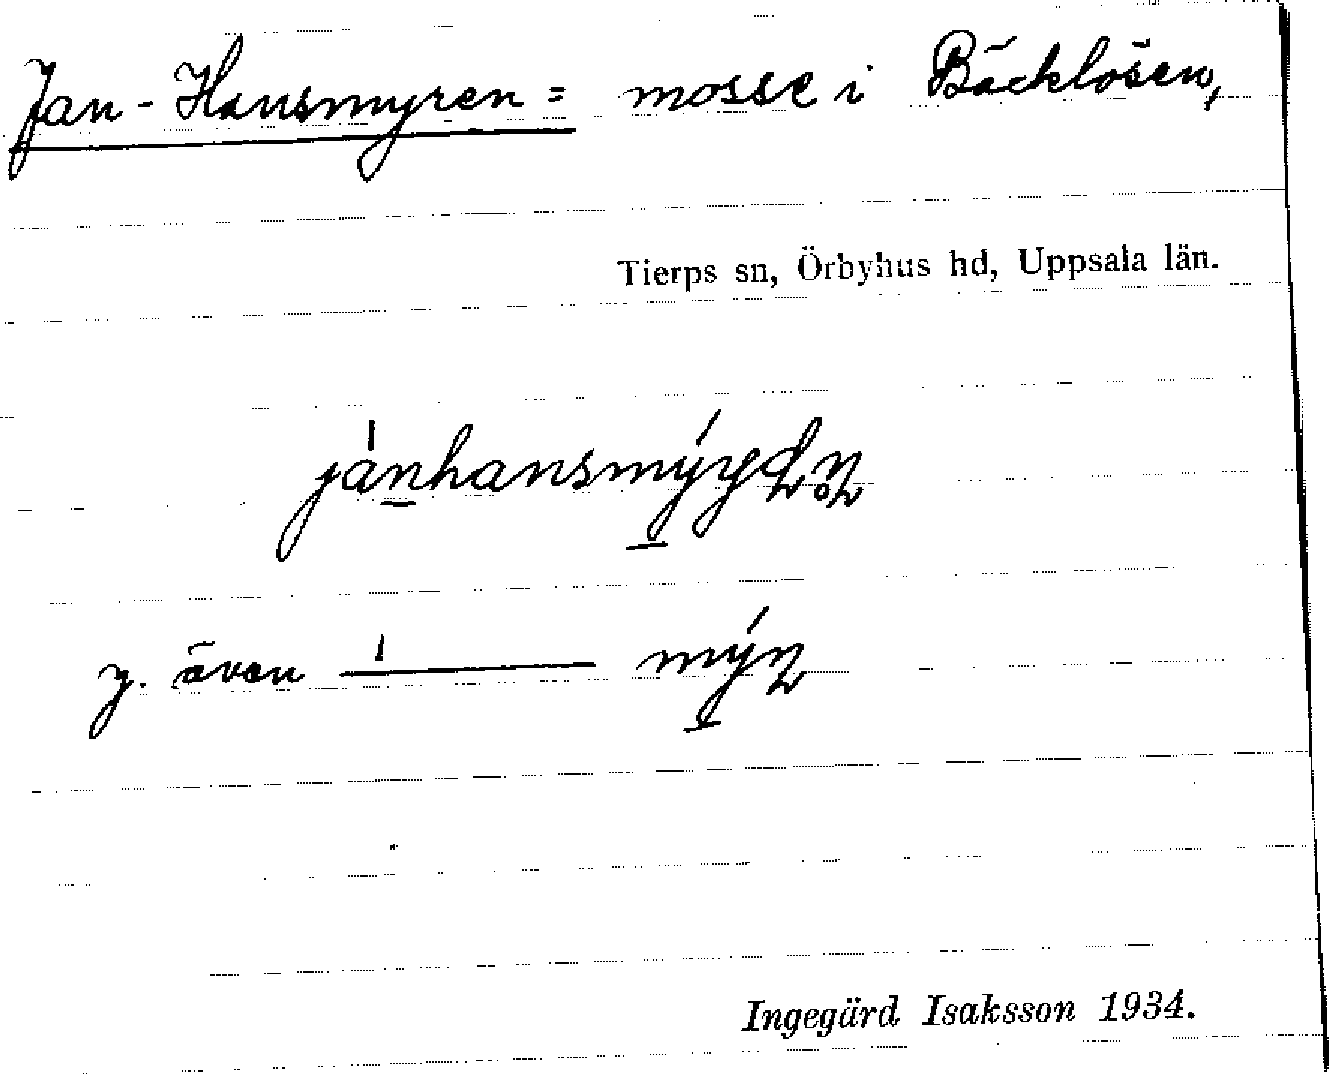 Jan-Hansmyren = mosse i Bäcklösen,
Tierps sn, Örbyhus hd, Uppsala län.
y. även
Ingegärd Isaksson 1934.